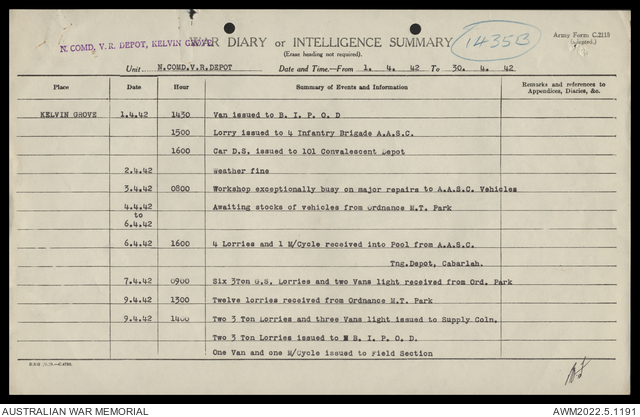 N. COMD, V.R. DEPOT, KELVIN GROVE
WAR DIARY or INTELLIGENCE SUMMARY
(Erase heading not required).
1435B
Army Form C.2118
(Adapted.)
Unit N.COMD.V.R.DEPOT Date and Time.—From 1. 4. 42 To 30. 4. 42
Place Date Hour Summary of Events and Information Remarks and references to Appendices, Diaries, &c.
KELVIN GROVE 1.4.42 1430 Van issued to B. I. P. O. D
1500 Lorry issued to 4 Infantry Brigade A.A.S.C.
1600 Car D.S. issued to 101 Convalescent Depot
2.4.42 Weather fine
3.4.42 0800 Workshop exceptionally busy on major repairs to A.A.S.C. Vehicles
4.4.42 Awaiting stocks of vehicles from Ordnance M.T. Park
to
6.4.42
6.4.42 1600 4 Lorries and 1 M/Cycle received into Pool from A.A.S.C.
Tng.Depot, Cabarlah.
7.4.42 0900 Six 3Ton G.S. Lorries and two Vans light received from Ord. Park
9.4.42 1300 Twelve lorries received from Ordnance M.T. Park
9.4.42 1400 Two 3 Ton Lorries and three Vans light issued to Supply Coln.
Two 3 Ton Lorries issued to B. I. P. O. D.
One Van and one M/Cycle issued to Field Section
AUSTRALIAN WAR MEMORIAL
AWM2022.5.1191